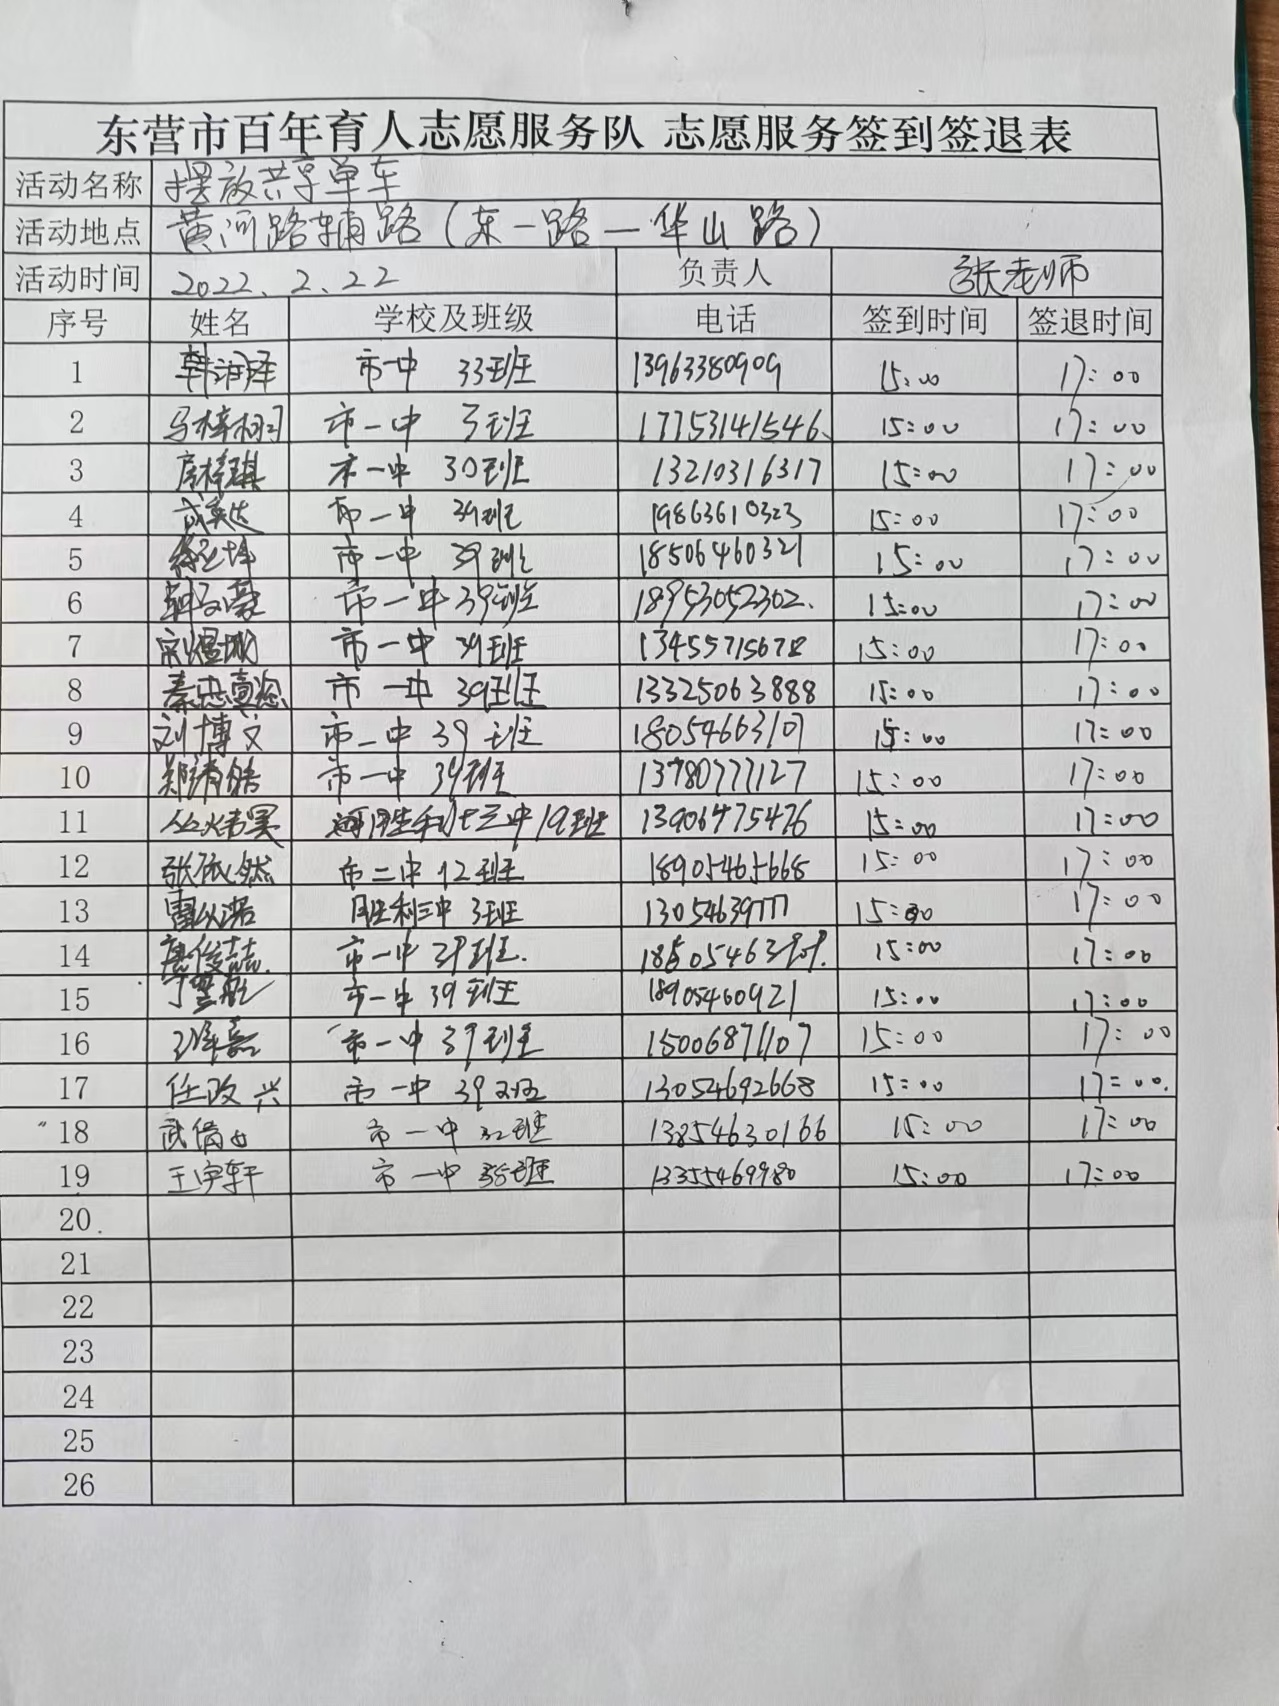 东营市百年育人志愿服务队 志愿服务签到签退表
活动名称 摆放共享单车
活动地点 黄河路辅路(东一路—华山路)
活动时间 2022.2.22 负责人 张老师
序号 姓名 学校及班级 电话 签到时间 签退时间
1 韩润泽 市一中 33班 13963380909 15:00 17:00
2 马梓桐 市一中 3班 17753141546 15:00 17:00
3 房梓琪 市一中 30班 13210316317 15:00 17:00
4 成英达 市一中 39班 19863610323 15:00 17:00
5 市一中 39班 18506460321 15:00 17:00
6 市一中 39班 18953052302 15:00 17:00
7 宋煜城 市一中 39班 13455715678 15:00 17:00
8 秦忠真 市一中 39班 13325063888 15:00 17:00
9 刘博文 市一中 39班 18054663107 15:00 17:00
10 郑清皓 市一中 39班 13780777127 15:00 17:00
11 丛炜昊 胜利十三中19班 13906475476 15:00 17:00
12 张依然 市二中 12班 18905465668 15:00 17:00
13 胜利三中 3班 13054639777 15:00 17:00
14 唐俊喆 市一中 39班. 15:00 17:00
15 市一中 39班 18905460921 15:00 17:00
16 市一中 39班 15006871107 15:00 17:00
17 任政兴 市一中 39班 13054692668 15:00 17:00.
18 市一中 32班 13854630166 15:00 17:00
19 王宇轩 市一中 38班 13355469980 15:00 17:00
20
21
22
23
24
25
26